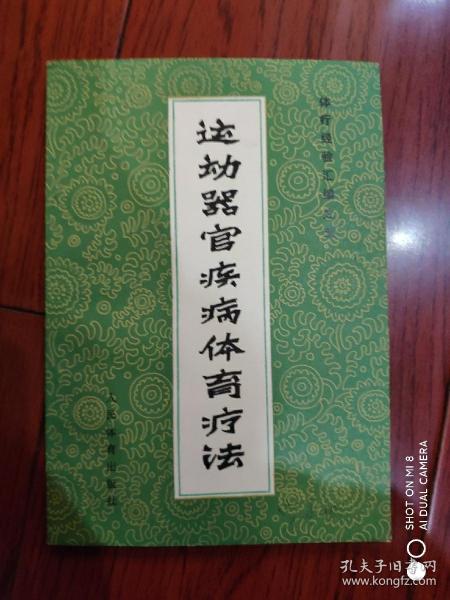 体疗经验汇编之三
运动器官疾病体育疗法
人民体育出版社
SHOT ON MI 8
AI DUAL CAMERA
孔夫子旧书网
www.kongfz.com